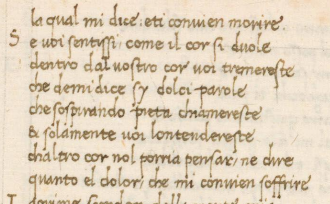 la qual mi dice: eti convien morire.
S e voi sentissi, come il cor si duole
dentro dal vostro cor voi tremereste
che demi dice sy dolci parole
che sospirando pieta chiamereste
& solamente voi lontendereste
chaltro cor nol porria pensar, ne dire
quanto el dolor, che mi convien soffrire